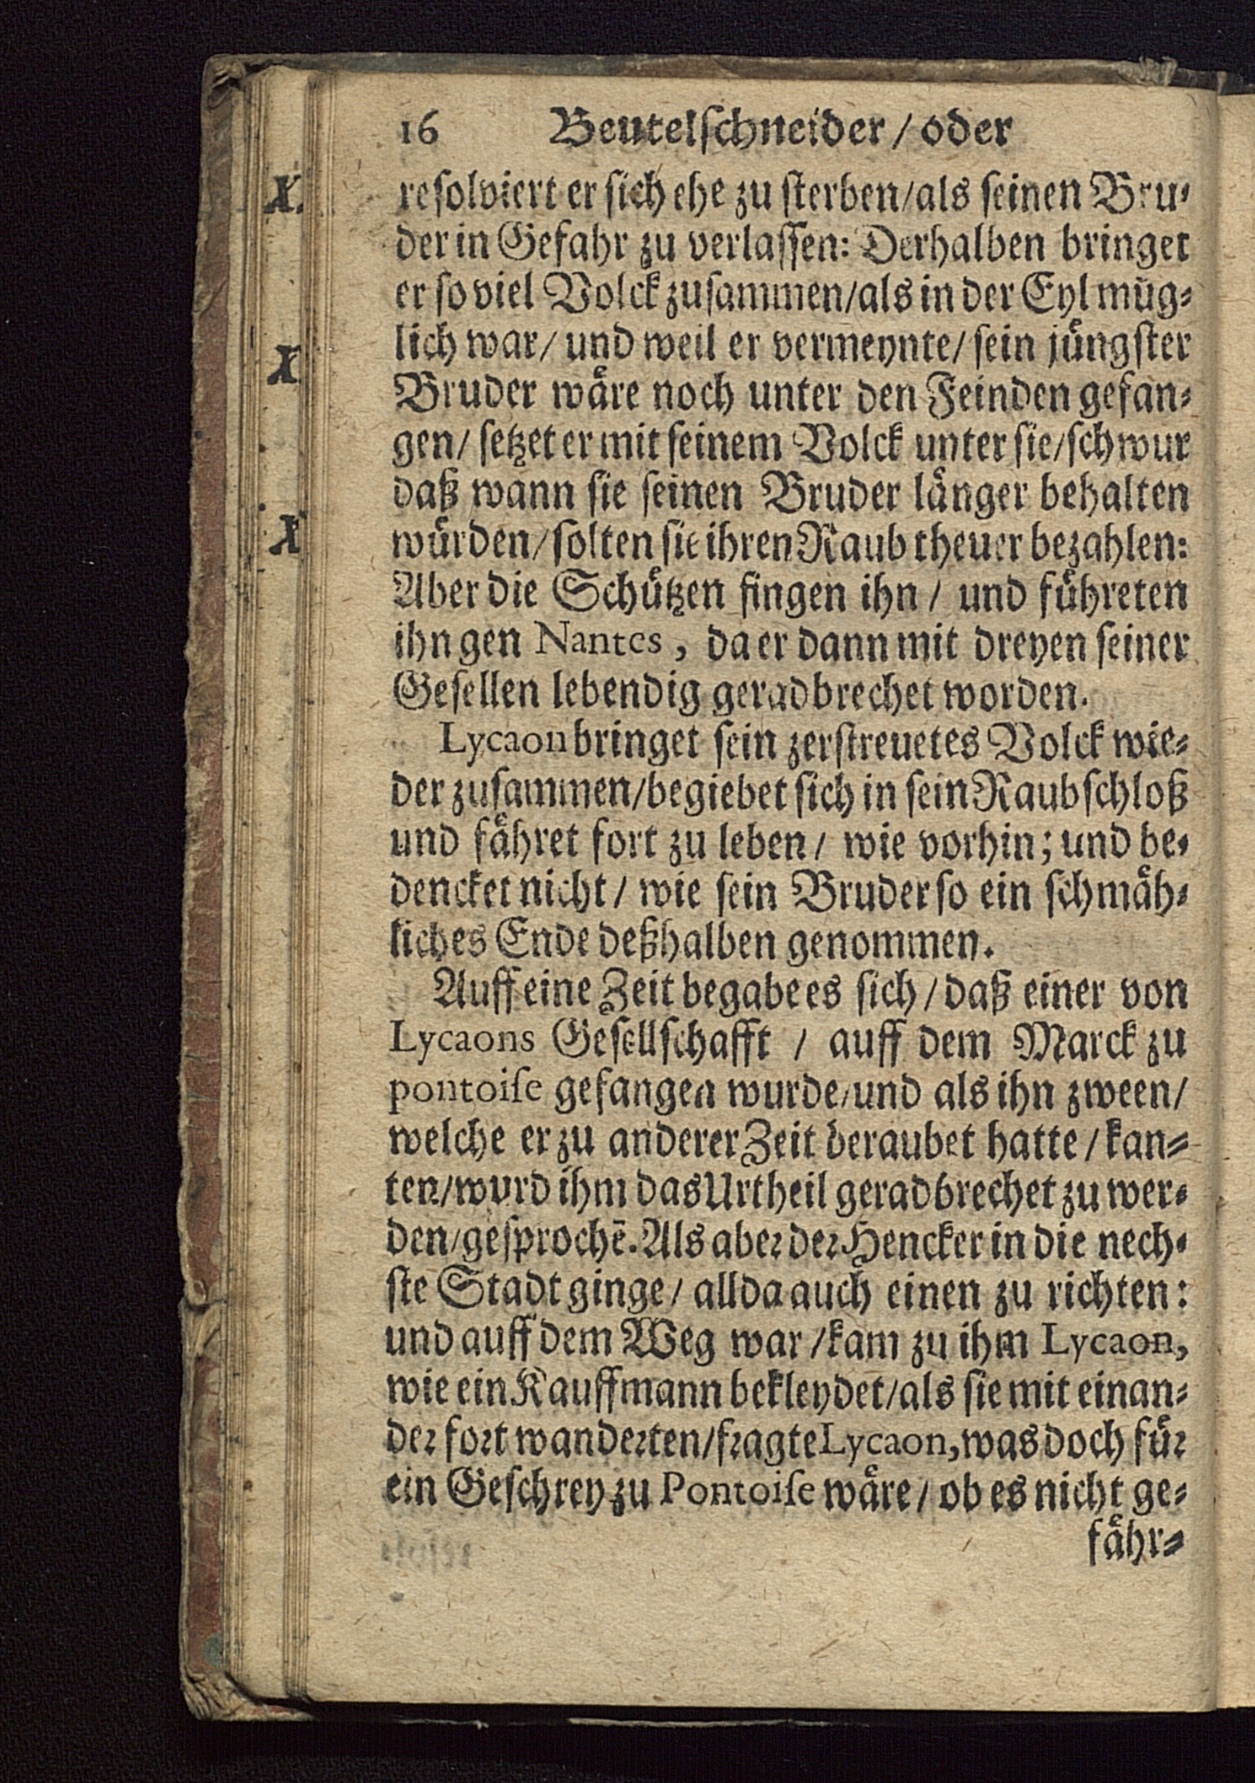 16 Beutelschneider / oder
resolviert er sich ehe zu sterben/als seinen Bru-
der in Gefahr zu verlassen: Derhalben bringet
er so viel Volck zusammen/als in der Eyl müg-
lich war/ und weil er vermeynte/ sein jüngster
Bruder wäre noch unter den Feinden gefan-
gen/ setzet er mit seinem Volck unter sie/schwur
daß wann sie seinen Bruder länger behalten
würden/solten sie ihren Raub theuer bezahlen:
Aber die Schützen fingen ihn / und führeten
ihn gen Nantes, da er dann mit dreyen seiner
Gesellen lebendig geradbrechet worden.
Lycaon bringet sein zerstreuetes Volck wie-
der zusammen/begiebet sich in sein Raubschloß
und fähret fort zu leben/ wie vorhin; und be-
dencket nicht/ wie sein Bruder so ein schmäh-
liches Ende deßhalben genommen.
Auff eine Zeit begabe es sich/daß einer von
Lycaons Gesellschafft / auff dem Marck zu
pontoise gefangen wurde/und als ihn zween/
welche er zu anderer Zeit beraubet hatte/kan-
ten/wurd ihm das Urtheil geradbrechet zu wer-
den/gesprochē. Als aber der Hencker in die nech-
ste Stadt ginge/ allda auch einen zu richten:
und auff dem Weg war/kam zu ihm Lycaon,
wie ein Kauffmann bekleydet/als sie mit einan-
der fort wanderten/fragte Lycaon, was doch für
ein Geschrey zu Pontoise wäre/ ob es nicht ge-
fähr-
X
X
X